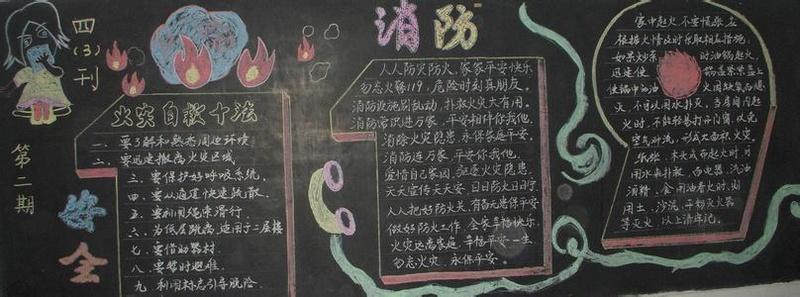 四(3)刊
第二期
安全
火灾自救十法
一、要了解和熟悉周边环境
二、要迅速撤离火灾区域
三、要保护好呼吸系统
四、要从通道快速疏散
五、要利用绳索滑行
六、为低层跳离,适用于二层楼
七、要借助器材
八、要暂时避难
九、利用标志引导脱险
消防
人人防灾防火,家家平安快乐
勿忘火警119,危险时刻真朋友。
消防设施别乱动,扑救火灾大有用。
消防常识进万家,平安相伴你我他,
消除火灾隐患,永保家庭平安。
消防连万家,平安你我他,
爱惜自己家园,驱逐火灾隐患,
天天宣传天天安,日日防火日日宁
人人把好防火关,有备无患保平安
做好防火工作,全家幸福快乐,
火灾远离家庭,幸福平安一生
勿忘火灾,永保平安。
家中起火,不要慌张,应
根据火情及时采取相应措施:
如果炒菜时油锅起火,
迅速使锅盖紧紧盖上
使锅中的油火因缺氧而熄
灭,不可以用水扑灭,当房间内起
火时,不能轻易打开门窗,以免
空气对流,形成大面积火灾,
纸张、木头或布起火时,可
用水来扑救,而电器、汽油
酒精、食用油着火时,则
用土、沙泥、干粉灭火器
等灭火,以上请牢记。